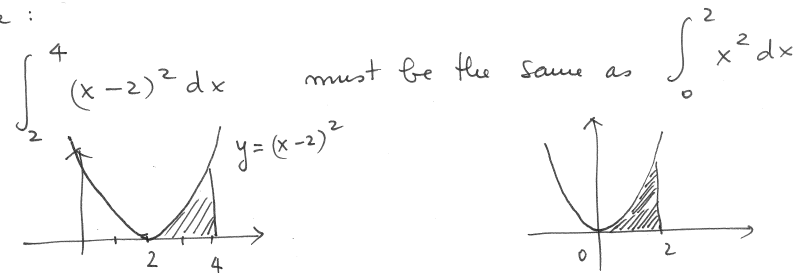 :
∫₂⁴ (x-2)² dx must be the same as ∫₀² x² dx
y = (x-2)²
2 4
0 2